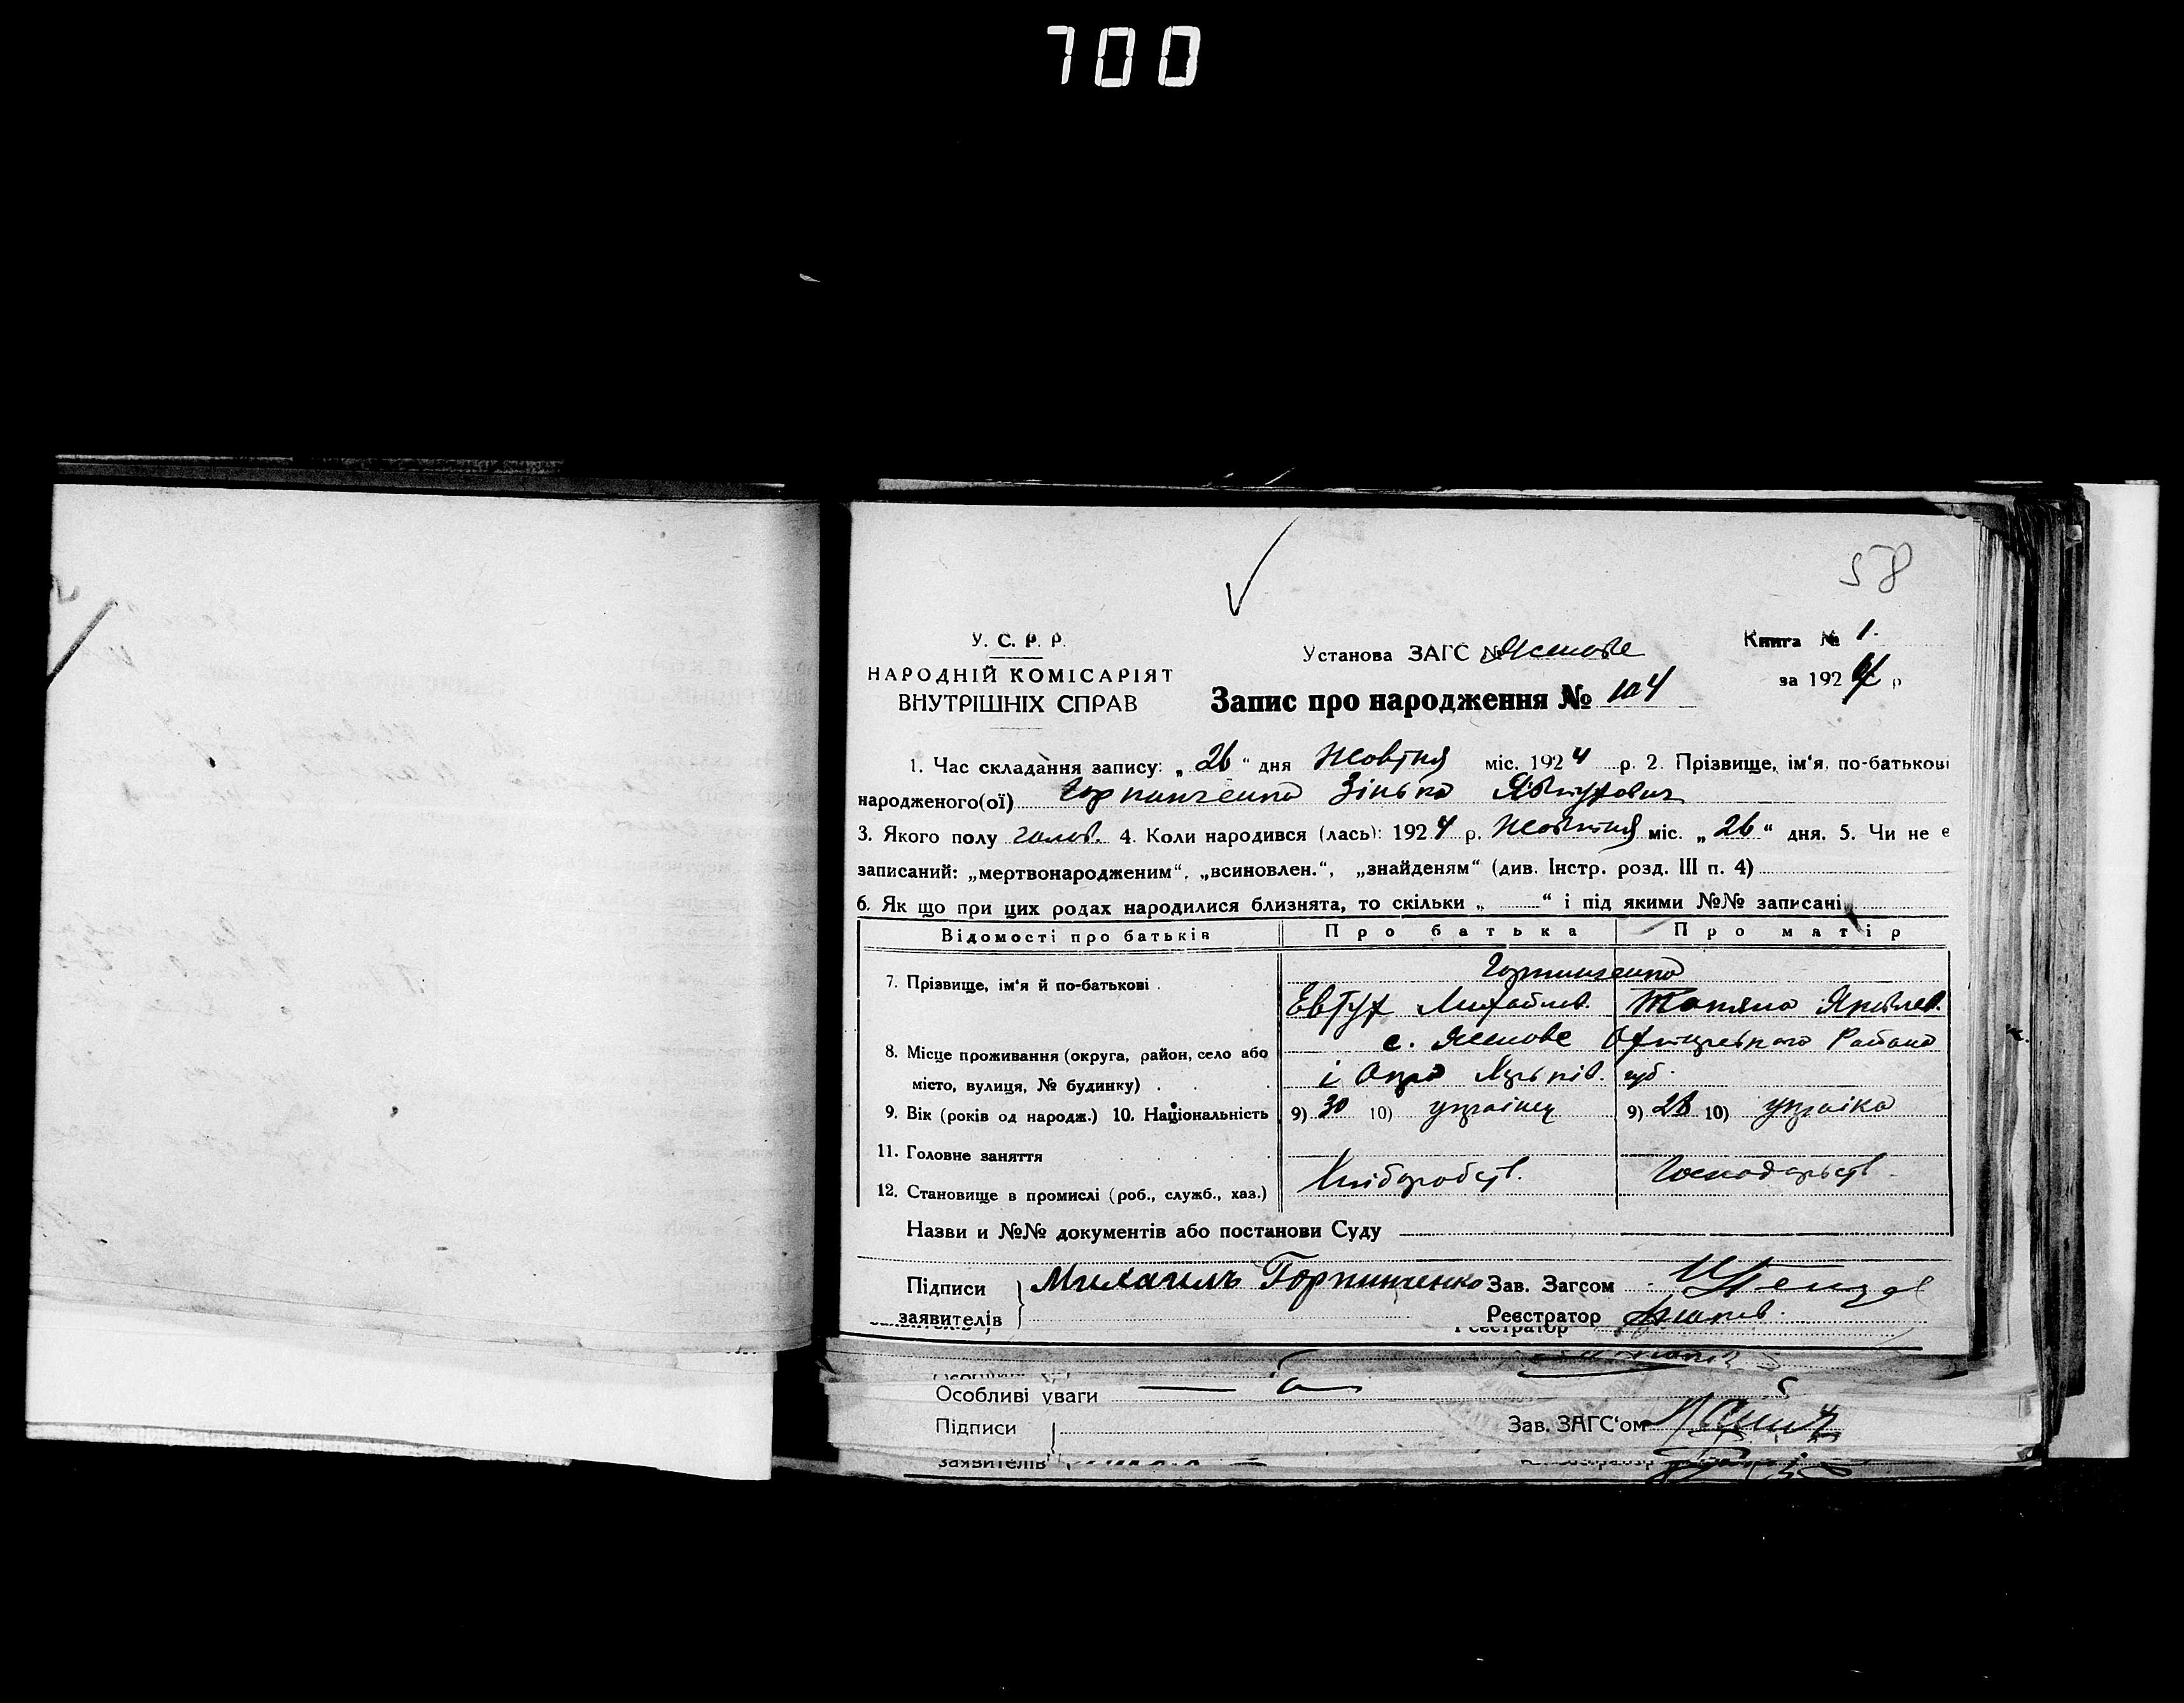 700
58
У. С. Р. Р.
НАРОДНІЙ КОМІСАРІЯТ
ВНУТРІШНІХ СПРАВ
Установа ЗАГС № Ясенове
Книга № 1.
за 1924 р
Запис про народження № 104
1. Час складання запису: „ 26 “ дня Жовтня міс. 1924 р. 2. Прізвище, ім'я, по-батькові
народженого(ої) Горпинченко Зінько Явтухович
3. Якого полу чолов. 4. Коли народився (лась): 1924 р. Жовтня міс. „ 26 “ дня. 5. Чи не є
записаний: „мертвонародженим“, „всиновлен.“, „знайденям“ (див. Інстр. розд. III п. 4)
6. Як що при цих родах народилися близнята, то скільки „ “ і під якими №№ записані
Відомості про батьків Про батька Про матір
7. Прізвище, ім'я й по-батькові . Горпинченко
Евтух Михайлов. Тетяна Яковлев.
8. Місце проживання (округа, район, село або с. Ясенове Охтирського Району
місто, вулиця, № будинку) . . і Окр. Харьків. губ.
9. Вік (років од народж.) 10. Національність 9) 30 10) українец 9) 28 10) украінка
11. Головне заняття
12. Становище в промислі (роб., служб., хаз.) Хліборобст. Господарьст.
Назви и №№ документів або постанови Суду
Підписи Михаилъ Горпинченко Зав. Загсом
заявителів Реєстратор
Реєстратор
Особливі уваги
Підписи Зав. ЗАГС'ом
заявителів